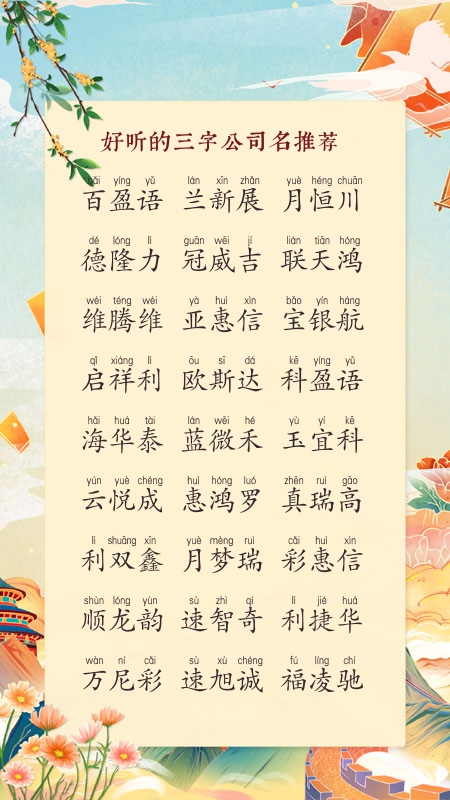 好听的三字公司名推荐
bǎi yíng yǔ lán xīn zhǎn yuè héng chuān
百盈语 兰新展 月恒川
dé lóng lì guān wēi jí lián tiān hóng
德隆力 冠威吉 联天鸿
wéi téng wéi yà huì xìn bǎo yín háng
维腾维 亚惠信 宝银航
qǐ xiáng lì ōu sī dá kē yíng yǔ
启祥利 欧斯达 科盈语
hǎi huá tài lán wēi hé yù yí kē
海华泰 蓝微禾 玉宜科
yún yuè chéng huì hóng luó zhēn ruì gāo
云悦成 惠鸿罗 真瑞高
lì shuāng xīn yuè mèng ruì cǎi huì xìn
利双鑫 月梦瑞 彩惠信
shùn lóng yùn sù zhì qí lì jié huá
顺龙韵 速智奇 利捷华
wàn ní cǎi sù xù chéng fú líng chí
万尼彩 速旭诚 福凌驰